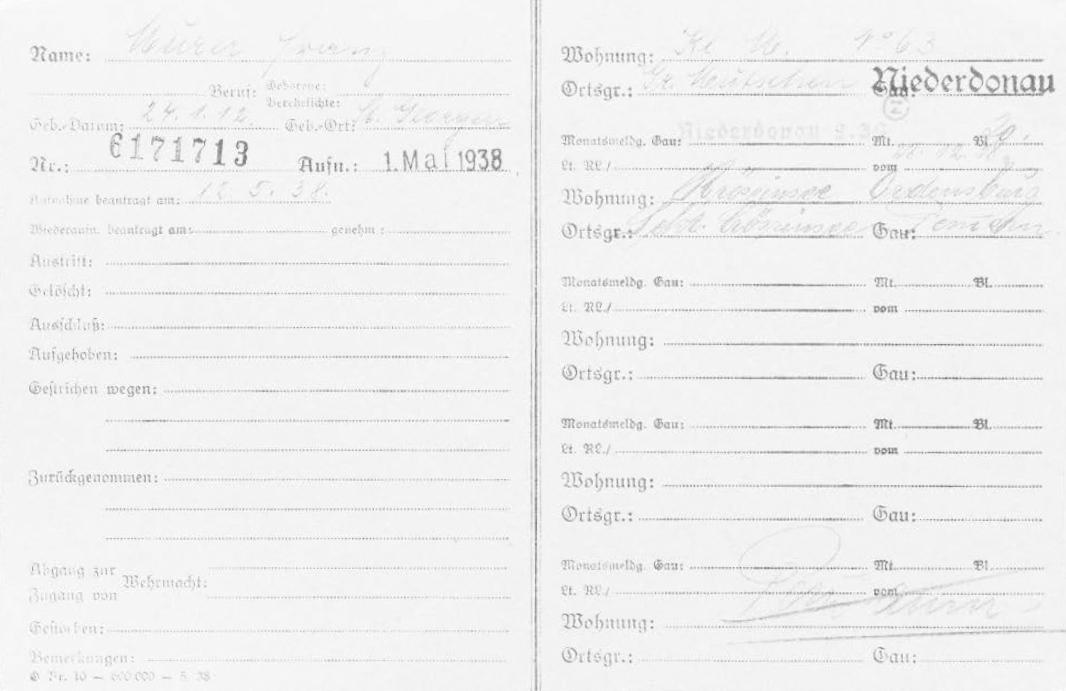 Name: Murer Franz
Beruf: Geborene:
Verehelichte:
Geb.-Datum: 24.1.12. Geb.-Ort: St. Georgen
Nr.: 6171713 Aufn.: 1. Mai 1938
Aufnahme beantragt am: 12.5.38.
Wiederaufn. beantragt am: genehm:
Austritt:
Gelöscht:
Ausschluß:
Aufgehoben:
Gestrichen wegen:
Zurückgenommen:
Abgang zur
Zugang von Wehrmacht:
Gestorben:
Bemerkungen:
Nr. 10 — 600000 — 5. 38
Wohnung: Kl. No 63
Ortsgr.: Gr. Gau: Niederdonau
Monatsmeldg. Gau: Niederdonau Mt. Bl. 20.
Lt. RL./ vom
Wohnung: Krössinsee Ordensburg
Ortsgr.: Gau: Pomm
Monatsmeldg. Gau: Mt. Bl.
Lt. RL./ vom
Wohnung:
Ortsgr.: Gau:
Monatsmeldg. Gau: Mt. Bl.
Lt. RL./ vom
Wohnung:
Ortsgr.: Gau:
Monatsmeldg. Gau: Mt. Bl.
Lt. RL./ vom
Wohnung:
Ortsgr.: Gau: